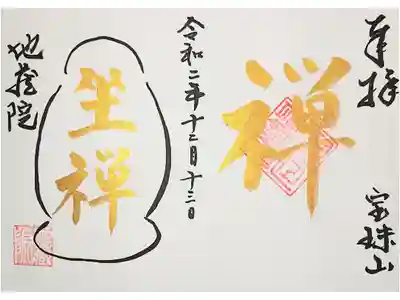 奉拝
宝珠山
禅
令和二年十二月十三日
坐禅
地蔵院